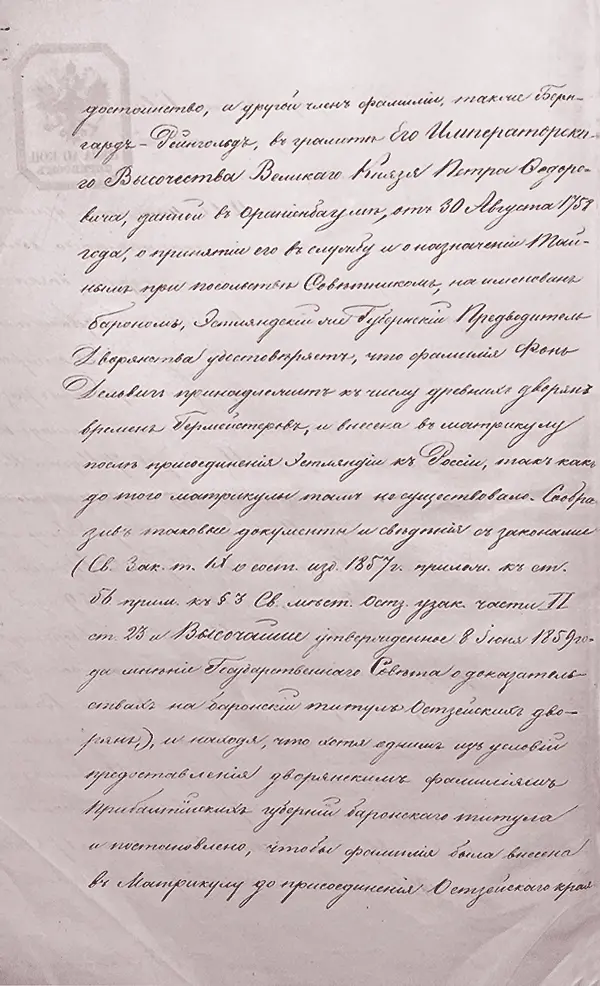 достоинство, и другой членъ фамилiи, также Берн-
гардъ-Рейнгольдъ, въ грамотѣ Его Императорска-
го Высочества Великаго Князя Петра Ѳедоро-
вича, данной въ Оранiенбаумѣ, отъ 30 Августа 1758
года, о принятiи его въ службу и о назначенiи Тай-
нымъ при посольствѣ Совѣтникомъ, наименованъ
барономъ, Эстляндскiй же Губернскiй Предводитель
Дворянства удостовѣряетъ, что фамилiя Фонъ
Дельвигъ принадлежитъ къ числу древнихъ дворянъ
временъ Гермейстеровъ, и внесена въ матрикулу
послѣ присоединенiя Эстляндiи къ Россiи, такъ какъ
до того матрикулы тамъ не существовало. Сообра
зивъ таковые документы и свѣдѣнiя съ законами
(Св. Зак. т. IX о сост. изд. 1857 г. прилож. къ ст.
56 прим. къ § 3 Св. мѣст. Остз. узак. части II
ст. 23 и Высочайше утвержденное 8 Iюня 1859 го-
да мнѣнiе Государственнаго Совѣта о доказатель-
ствахъ на баронскiй титулъ Остзейскихъ дво-
рянъ,), и находя, что хотя однимъ изъ условiй
предоставленiя дворянскимъ фамилiямъ
Прибалтiйскихъ губернiй баронскаго титула
и постановлено, чтобы фамилiя была внесена
въ Матрикулу до присоединенiя Остзейскаго края